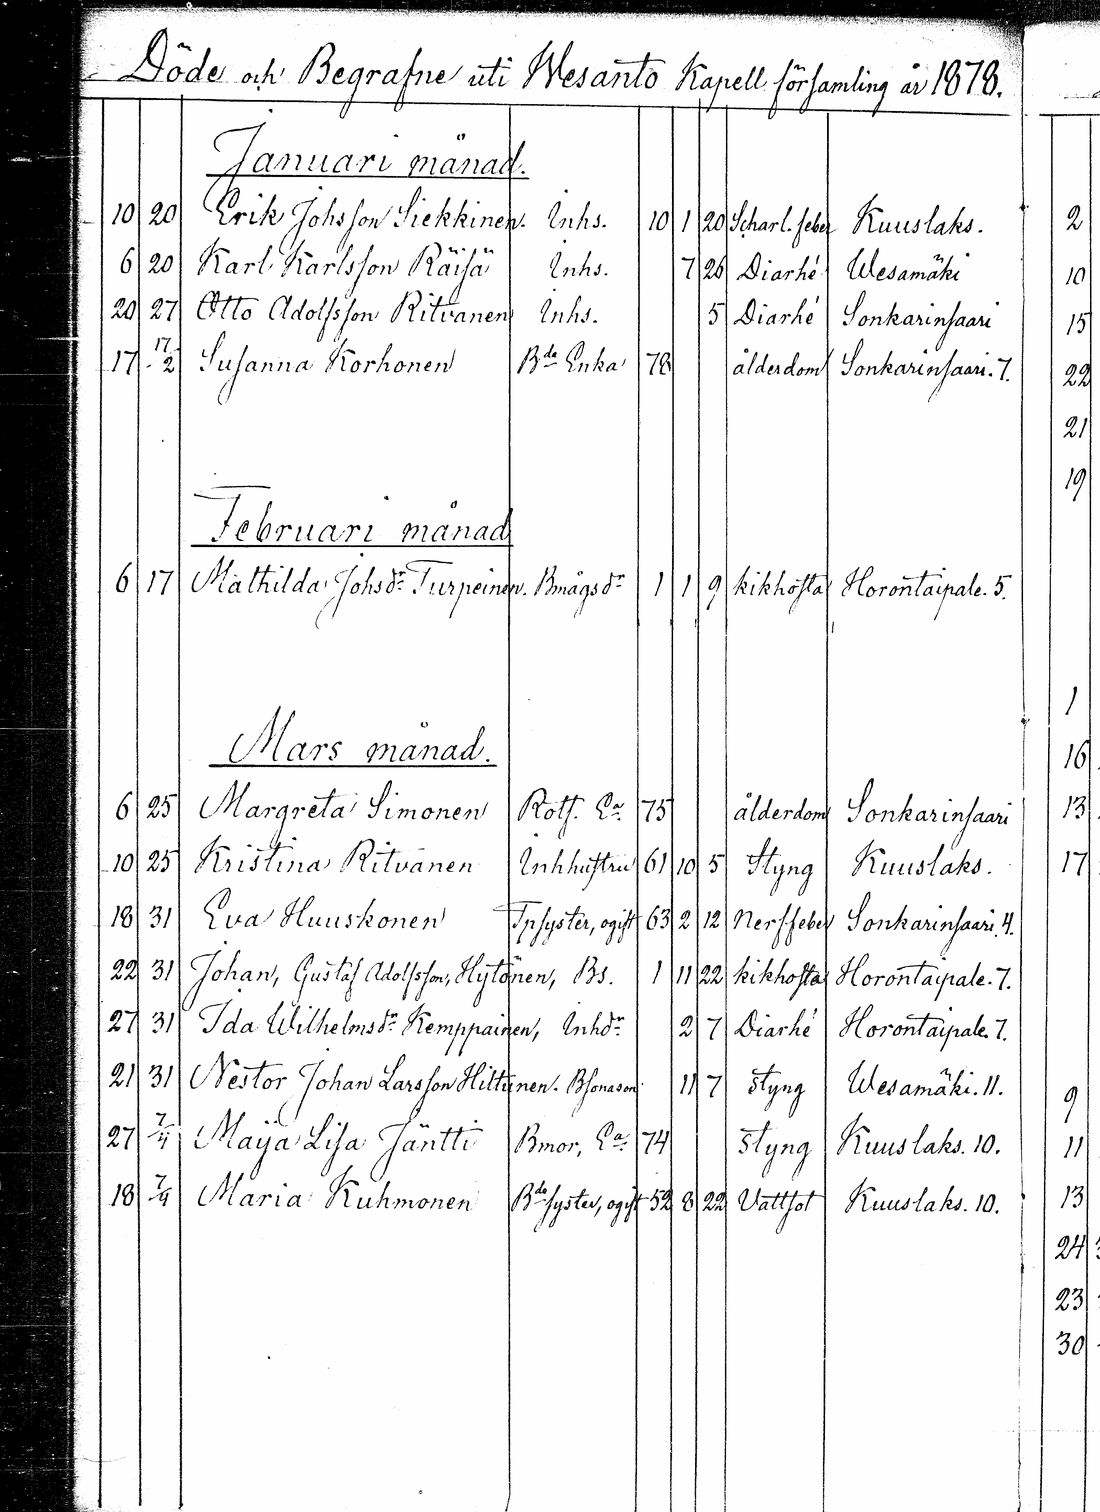 Döde och Begrafne uti Wesanto Kapell församling år 1878.
Januari månad.
10 20 Erik Johsson Siekkinen. Inhs. 10 1 20 Scharl. feber Kuuslaks.
6 20 Karl Karlsson Räisä Inhs. 7 26 Diarhé Wesamäki
20 27 Otto Adolfsson Ritvanen Inhs. 5 Diarhé Sonkarinsaari
17 17/2 Susanna Korhonen Bde Enka 78 ålderdom Sonkarinsaari. 7.
Februari månad
6 17 Mathilda Johsdr Turpeinen. Bmågsdr 1 1 9 kikhosta Horontaipale. 5.
Mars månad.
6 25 Margreta Simonen Rotf. Ea 75 ålderdom Sonkarinsaari
10 25 Kristina Ritvanen Inhhustru 61 10 5 Styng Kuuslaks.
18 31 Eva Huuskonen Tpsyster, ogift 63 2 12 Nerffeber Sonkarinsaari. 4.
22 31 Johan, Gustaf Adolfsson, Hytönen, Bs. 1 11 22 kikhosta Horontaipale. 7.
27 31 Ida Wilhelmsdr Kemppainen, Inhdr 2 7 Diarhé Horontaipale. 7.
21 31 Nestor Johan Larsson Hiltunen. Bsonason 11 7 styng Wesamäki. 11.
27 7/4 Maija Lisa Jäntti Bmor, Ea 74 styng Kuuslaks. 10.
18 7/4 Maria Kuhmonen Bde syster, ogift 52 8 22 Vattsot Kuuslaks. 10.
2
10
15
22
21
19
1
16
13
17
9
11
13
24
23
30